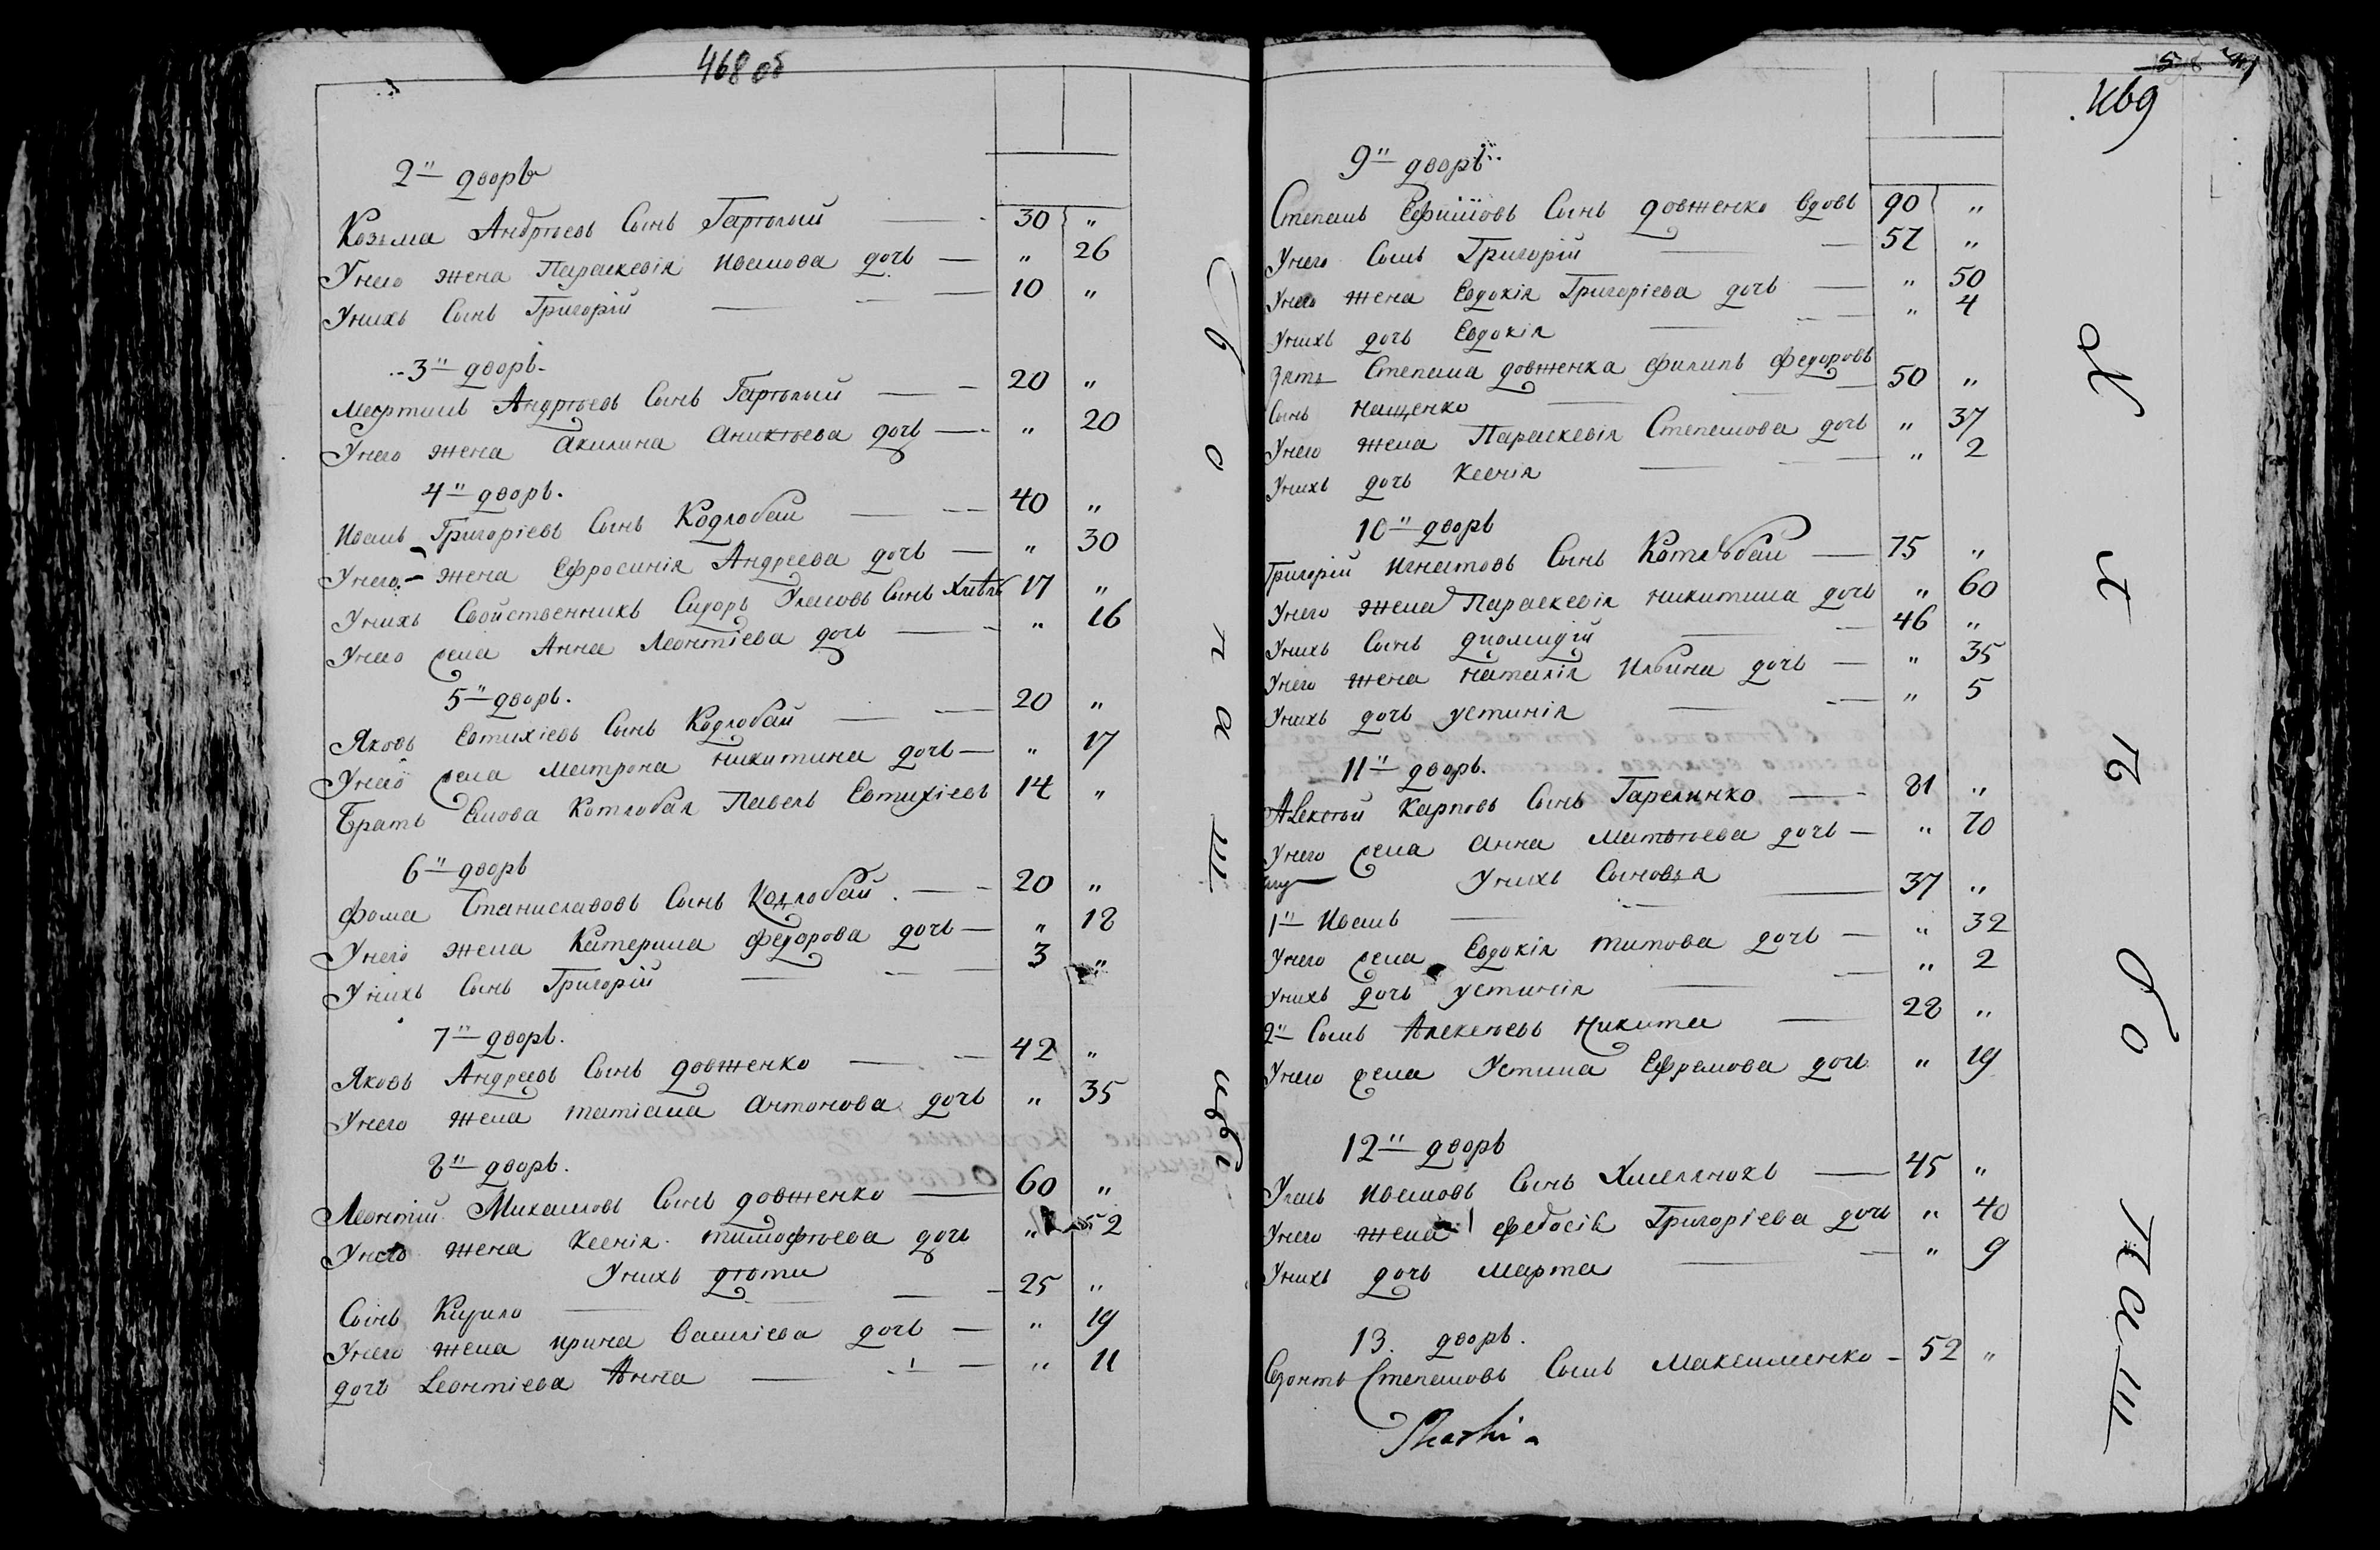 468 об
2й дворъ
Козьма Андрѣевъ Сынъ Гартолый — 30 „
У него жена Параскевія Иванова дочь — „ 26
У нихъ Сынъ Григорій — 10 „
3й дворъ
Мартинъ Андрѣевъ Сынъ Гартолый — 20 „
У него жена Акилина Аникѣева дочь — „ 20
4й дворъ.
Иванъ Григоріевъ Сынъ Кодлобай — 40 „
У него жена Ефросинія Андреева дочь — „ 30
У нихъ Свойственникъ Сидоръ Улановъ Сынъ 17 „
У него жена Анна Леонтіева дочь — „ 16
5й дворъ.
Яковъ Евтихіевъ Сынъ Кодлобай — 20 „
У него жена Матрона Никитина дочь — „ 17
Братъ Котлобая Павелъ Евтихіевъ 14 „
6й дворъ
Фома Станиславовъ Сынъ Кодлобай — 20 „
У него жена Катерина Федорова дочь — „ 18
У нихъ Сынъ Григорій — 3 „
7й дворъ.
Яковъ Андреевъ Сынъ Довженко — 42 „
У него жена Татіана Антонова дочь „ 35
8й дворъ.
Леонтій Михаиловъ Сынъ Довженко — 60 „
У него жена Ксенія Тимофѣева дочь „ 52
У нихъ дѣти
Сынъ Кирило — 25 „
У него жена Ирина Василіева дочь — „ 19
дочь Леонтіева Анна — „ 11
о п а ш
469
9й дворъ
Степанъ Сынъ Довженко Вдовъ 90 „
У него Сынъ Григорій — 57 „
У него жена Евдокія Григоріева дочь — „ 50
У нихъ дочь Евдокія — „ 4
Зять Степана Довженка Филипъ Федоровъ
Сынъ Нащенко — 50 „
У него жена Параскевія Степанова дочь „ 37
У нихъ дочь Ксенія — „ 2
10й дворъ
Григорій Игнатовъ Сынъ Котлобай — 75 „
У него жена Параскевія Никитина дочь „ 60
У нихъ Сынъ Диомидій — 46 „
У него жена Наталія Ильина дочь — „ 35
У нихъ дочь Устинія — „ 5
11й дворъ.
Алексѣй Карповъ Сынъ Гаренко — 81 „
У него жена Анна Матвѣева дочь — „ 70
У нихъ Сыновья
1й Иванъ — 37 „
У него жена Евдокія Титова дочь — „ 32
У нихъ дочь Устинія — „ 2
2й Сынъ Алексѣевъ Никита — 28 „
У него жена Устина Ефремова дочь „ 19
12й дворъ
Уланъ Ивановъ Сынъ Хмелянокъ — 45 „
У него жена Федосія Григоріева дочь „ 40
У нихъ дочь Марта — „ 9
13. дворъ.
Степановъ Сынъ Максименко — 52 „
б о п а ш